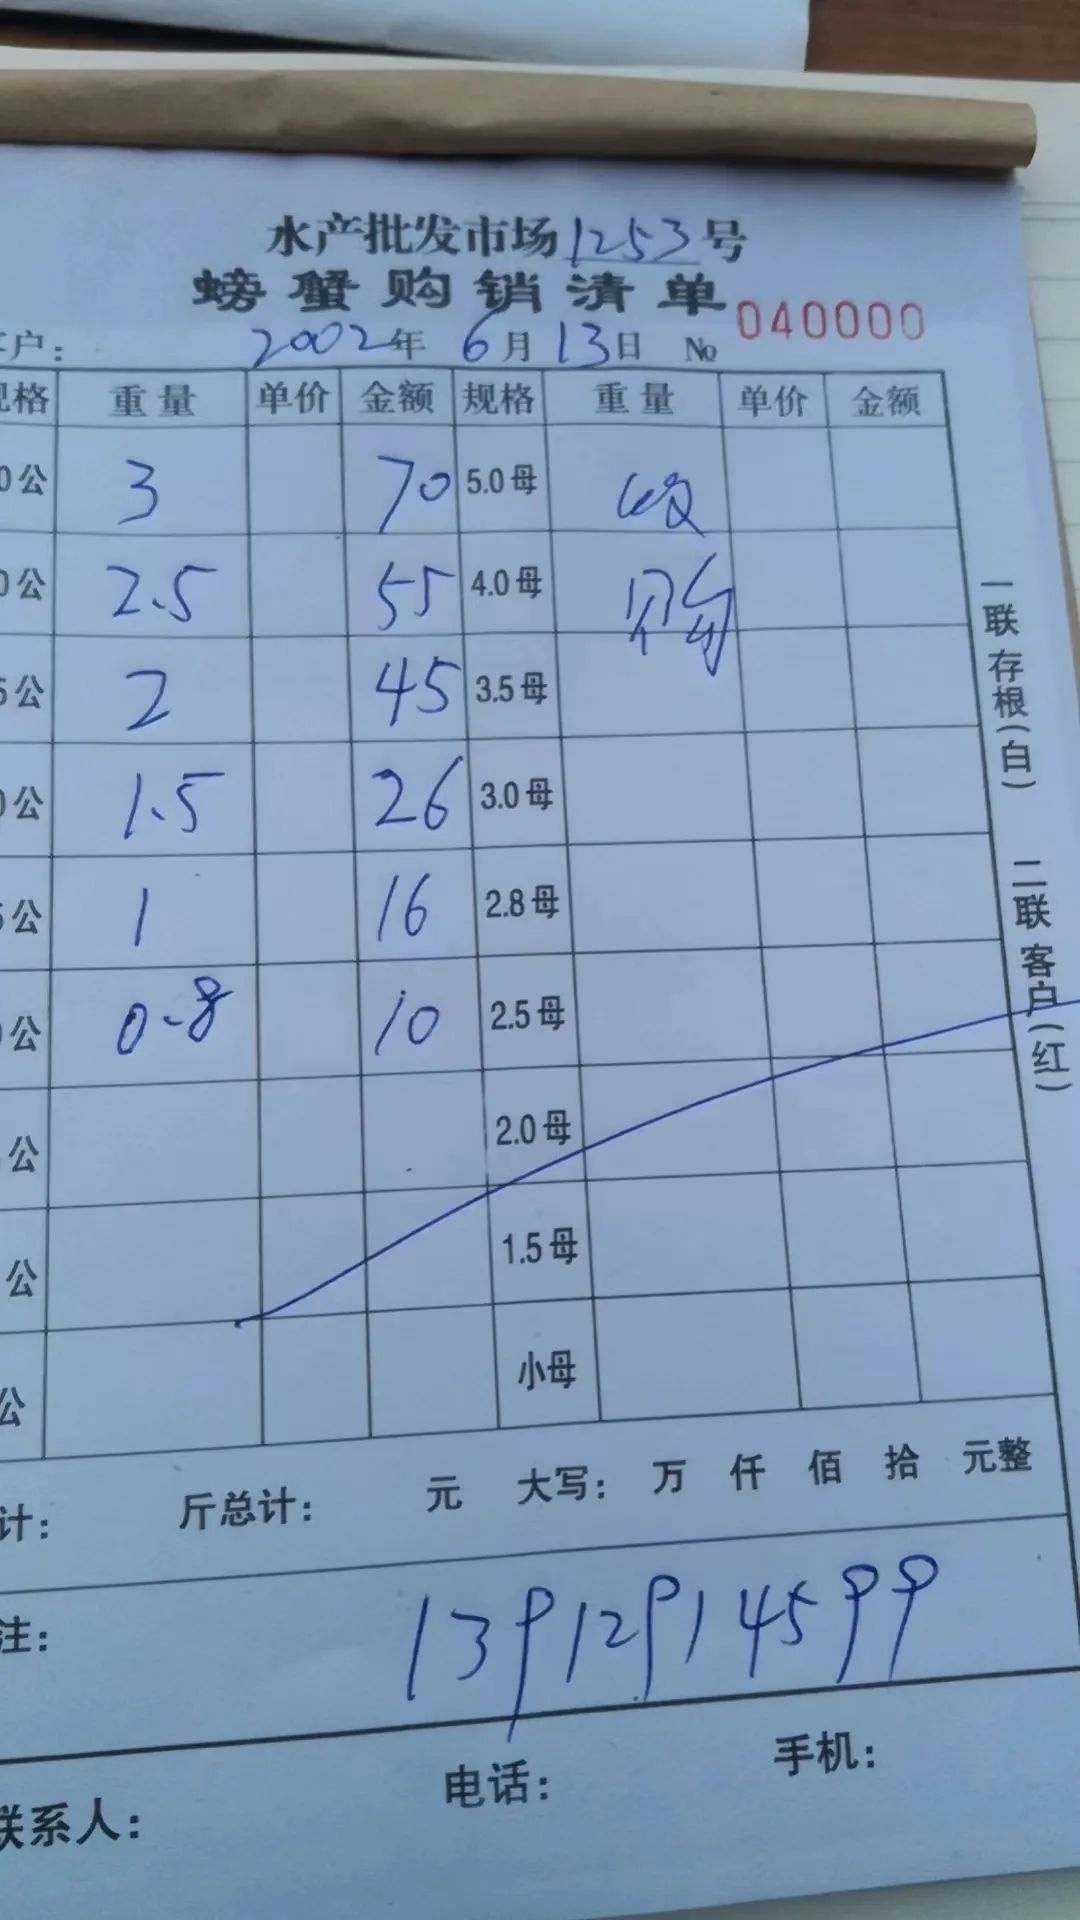 水产批发市场1253号
螃蟹购销清单
户: 2002年 6月 13日 No 040000
格 重量 单价 金额 规格 重量 单价 金额
0公 3 70 5.0母
0公 2.5 55 4.0母
5公 2 45 3.5母
0公 1.5 26 3.0母
5公 1 16 2.8母
公 0.8 10 2.5母
公 2.0母
公 1.5母
公 小母
计: 斤总计: 元 大写: 万 仟 佰 拾 元整
注: 13912914599
联系人: 电话: 手机:
一联存根(白) 二联客户(红)